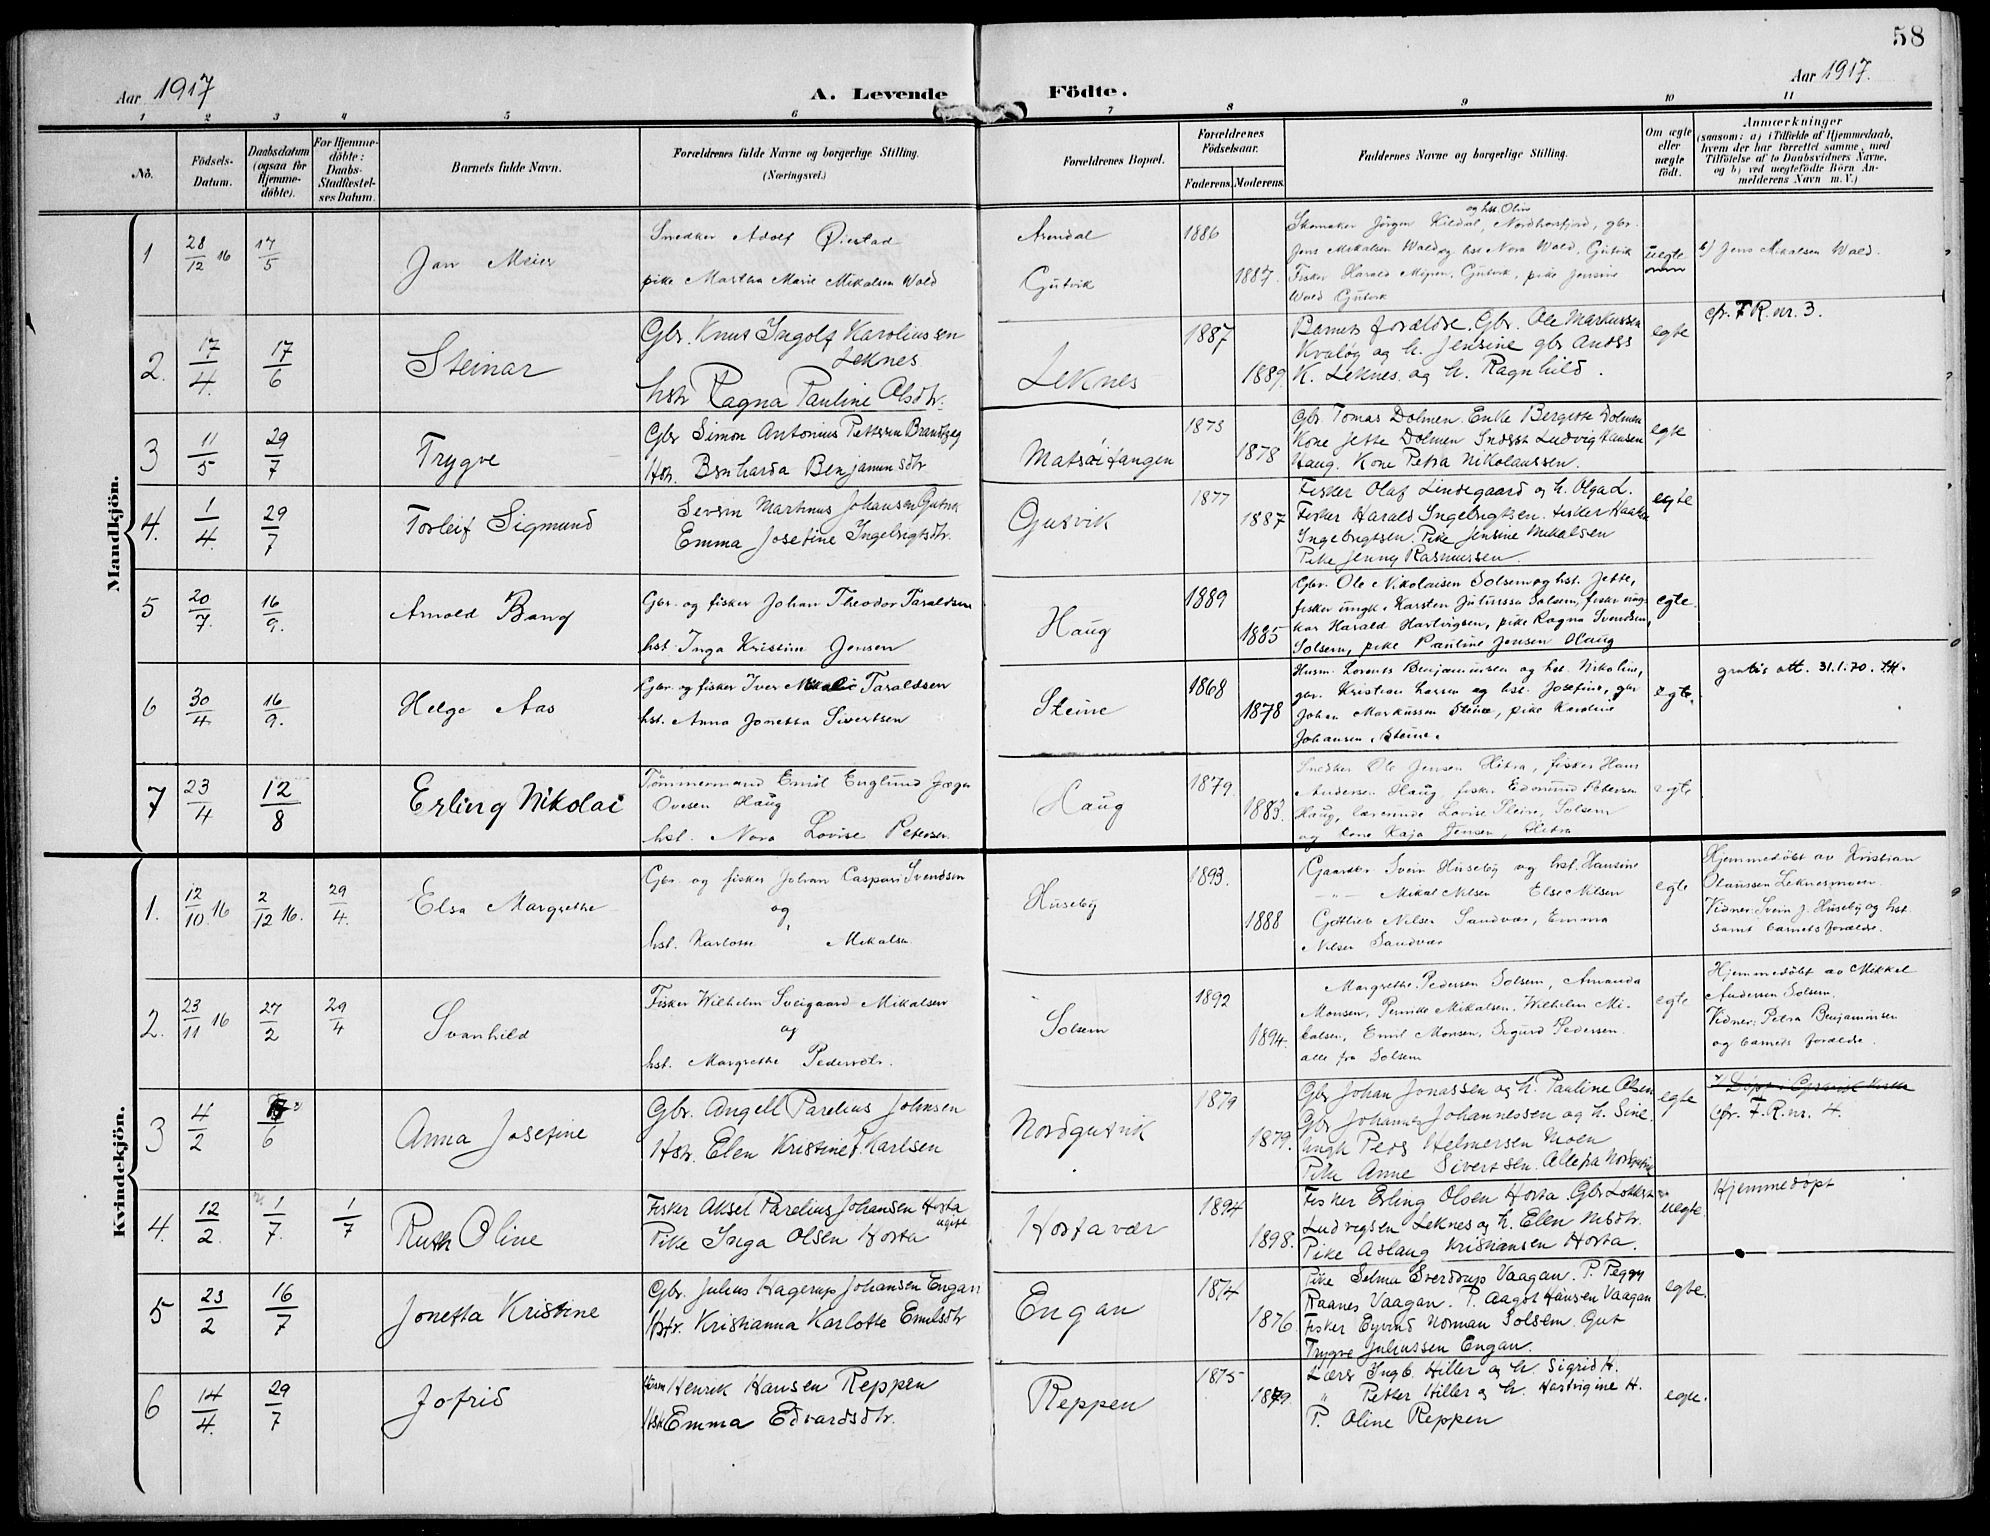 58
Aar 1917
A. Levende Födte.
Aar 1917.
1 2 3 4 5 6 7 8 9 10 11
No.
Födsels-
Datum.
Daabsdatum
(ogsaa for
Hjemme-
döbte).
For Hjemme-
döbte:
Daabs-
Stadfæstel-
ses Datum.
Barnets fulde Navn.
Forældrenes fulde Navne og borgerlige Stilling.
(Næringsvei.)
Forældrenes Bopæl.
Forældrenes
Födselsaar.
Faderens. Moderens.
Faddernes Navne og borgerlige Stilling.
Om ægte
eller
uægte
födt.
Anmærkninger
(saasom: a) i Tilfælde af Hjemmedaab,
hvem der har forrettet samme, med
Tilföielse af to Daabsvidners Navne,
og b) ved uægtefödte Börn An-
melderens Navn m. V.)
Mandkjön.
1
28/12 16
17/5
Jan Meier
Snedker Adolf Øiestad
pike Martha Marie Mikalsen Wold
Arendal
Gutvik
1886
1887.
og hst. Oline
Skomaker Jörgen Kildal, Nordhorsfjord, gbr.
Jens Mikalsen Wold og hst Nora Wold, Gutvik
Fisker Harald Moen, Gutvik, pike Jensine
Wold Gutvik
uegte
b) Jens Mikalsen Wold.
2.
17/4
17/6
Steinar
Gbr. Knut Ingolf Karoliussen
Leknes
hstr Ragna Pauline Olsdtr.
Leknes
1887
1889.
Barnets forældre. Gbr. Ole Markussen
Kvaløy og h. Jensine gbr Anders
K. Leknes og h. Ragnhild.
egte
cfr. F R. nr. 3.
3
11/5
29/7
Trygve
Gbr Simon Antonius Pettersen Brandtzeg
Hstr. Bernharda Benjaminsdtr
Matsøitangen
1873
1878
Gbr Tomas Dolmen. Enke Bergette Dolmen
Kone Jette Dolmen Inderst Ludvig Hansen
Haug. Kone Petra Nikolaussen.
egte
4.
1/4.
29/7
Torleif Sigmund
Severin Martinus Johansen Gutvik
Emma Josefine Ingebrigtsdtr.
Gutvik
1877
1887
Fisker Olaf Lindegaard og h. Olga L.
Fisker Harald Ingebrigtsen. Fisker Haakon
Ingebrigtsen. Pike Jensine Mikalsen
Pike Jenny Rasmussen.
egte
5
20/7.
16/9.
Arnold Bang
Gbr. og fisker Johan Theodor Taraldsen
hst. Inga Kristine Jensen
Haug
1889
1885
Gbr. Ole Nikolaisen Solsem og hst. Jette,
fisker ungk. Karsten Juliussen Solsem, fisker ung-
kar Harald Hartvigsen, pike Ragna Svendsen,
Solsem, pike Pauline Jensen Haug
egte.
6
30/4
16/9.
Helge Aas
Gbr. og fisker Iver Mikal Taraldsen
hst. Anna Jonetta Sivertsen
Steine
1868
1878
Husm. Lorents Benjaminsen og hst. Nikoline,
gbr. Kristian Larsen og hst. Josefine, gbr
Johan Markussen Steine, pike Karoline
Johansen, Steine.
egte.
gratis att. 31.1.70. TH.
7
23/4
12/8
Erling Nikolai
Tømmermand Emil Englund Jæger
Ovesen Haug
hst. Nora Lovise Petersen
Haug
1879.
1883.
Snedker Ole Jensen Hitra, fisker Hans
Andersen Haug, fisker Edmund Petersen
Haug, lærerinde Lovise Steine, Solsem
og kone Kaja Jensen, Hitra
egte
Kvindekjön.
1.
12/10 16
2/12 16.
29/4.
Elsa Margrethe
Gbr. og fisker Johan Caspari Svendsen
og
hst. Karlotte Mikalsen
Huseby
1893.
1888
Gaardbr. Svein Huseby og hst. Hansine
-"- Mikal Nilsen Else Nilsen
Gottlieb Nilsen Sandvær, Emma
Nilsen Sandvær
egte
Hjemmedöbt av Kristian
Olaussen Leknesmoen
Vidner: Svein J. Huseby og hst.
samt barnets forældre.
2.
23/11 16
27/2
29/4
Svanhild
Fisker Wilhelm Sveigaard Mikalsen
og
hst. Margrethe Pedersdtr.
Solsem
1892
1894.
Margrethe Pedersen Solsem, Amanda
Monsen, Pernille Mikalsen, Wilhelm Mi-
kalsen, Emil Monsen, Sigurd Pedersen
alle fra Solsem
egte
Hjemmedöbt av Mikkel
Andersen Solsem.
Vidner: Petra Benjaminsen
og barnets forældre.
3
4/2
17/6
Anna Josefine
Gbr. Angell Parelius Johnsen
Hstr. Elen Kristine P. Karlsen
Nordgutvik
1879
1879.
Gbr Johan Jonassen og h. Pauline Olsen
Gbr Johannes Johannessen og h. Sine.
Ungk Peder Helmersen Moen
Pike Anne Sivertsen. Alle fra Nordgutvik
egte
Døpt i Gutvik kirke
cfr. F. R. nr. 4.
4.
12/2.
1/7.
1/7
Ruth Oline
Fisker Aksel Parelius Johansen Horta
ugift
Pike Inga Olsen Horta
Hortavær
1894
1898.
Fisker Erling Olsen Horta. Gbr Lokkert
Ludvigsen Leknes og h. Elen Mbdtr.
Pike Aslaug Kristiansen Horta.
uegte.
Hjemmedøpt
5
23/2
16/7
Jonetta Kristine
Gbr. Julius Hagerup Johansen Engan
Hstr. Kristianna Karlotte Emilsdtr
Engan
1874
1876
Pike Selma Sverdrup Vaagan. P. Peggy
Raanes Vaagan. P. Aagot Hansen Vaagan
Fisker Eyvind Norman Solsem. Gut
Trygve Juliussen Engan.
egte.
6
14/4.
29/7
Jofrid
Husm Henrik Hansen Reppen
Hst Emma Edvardsdtr.
Reppen
1875
1879.
Lærer Ingb. Hiller og h. Sigrid H.
" Petter Hiller og h. Hartvigine H.
P. Oline Reppen
egte.